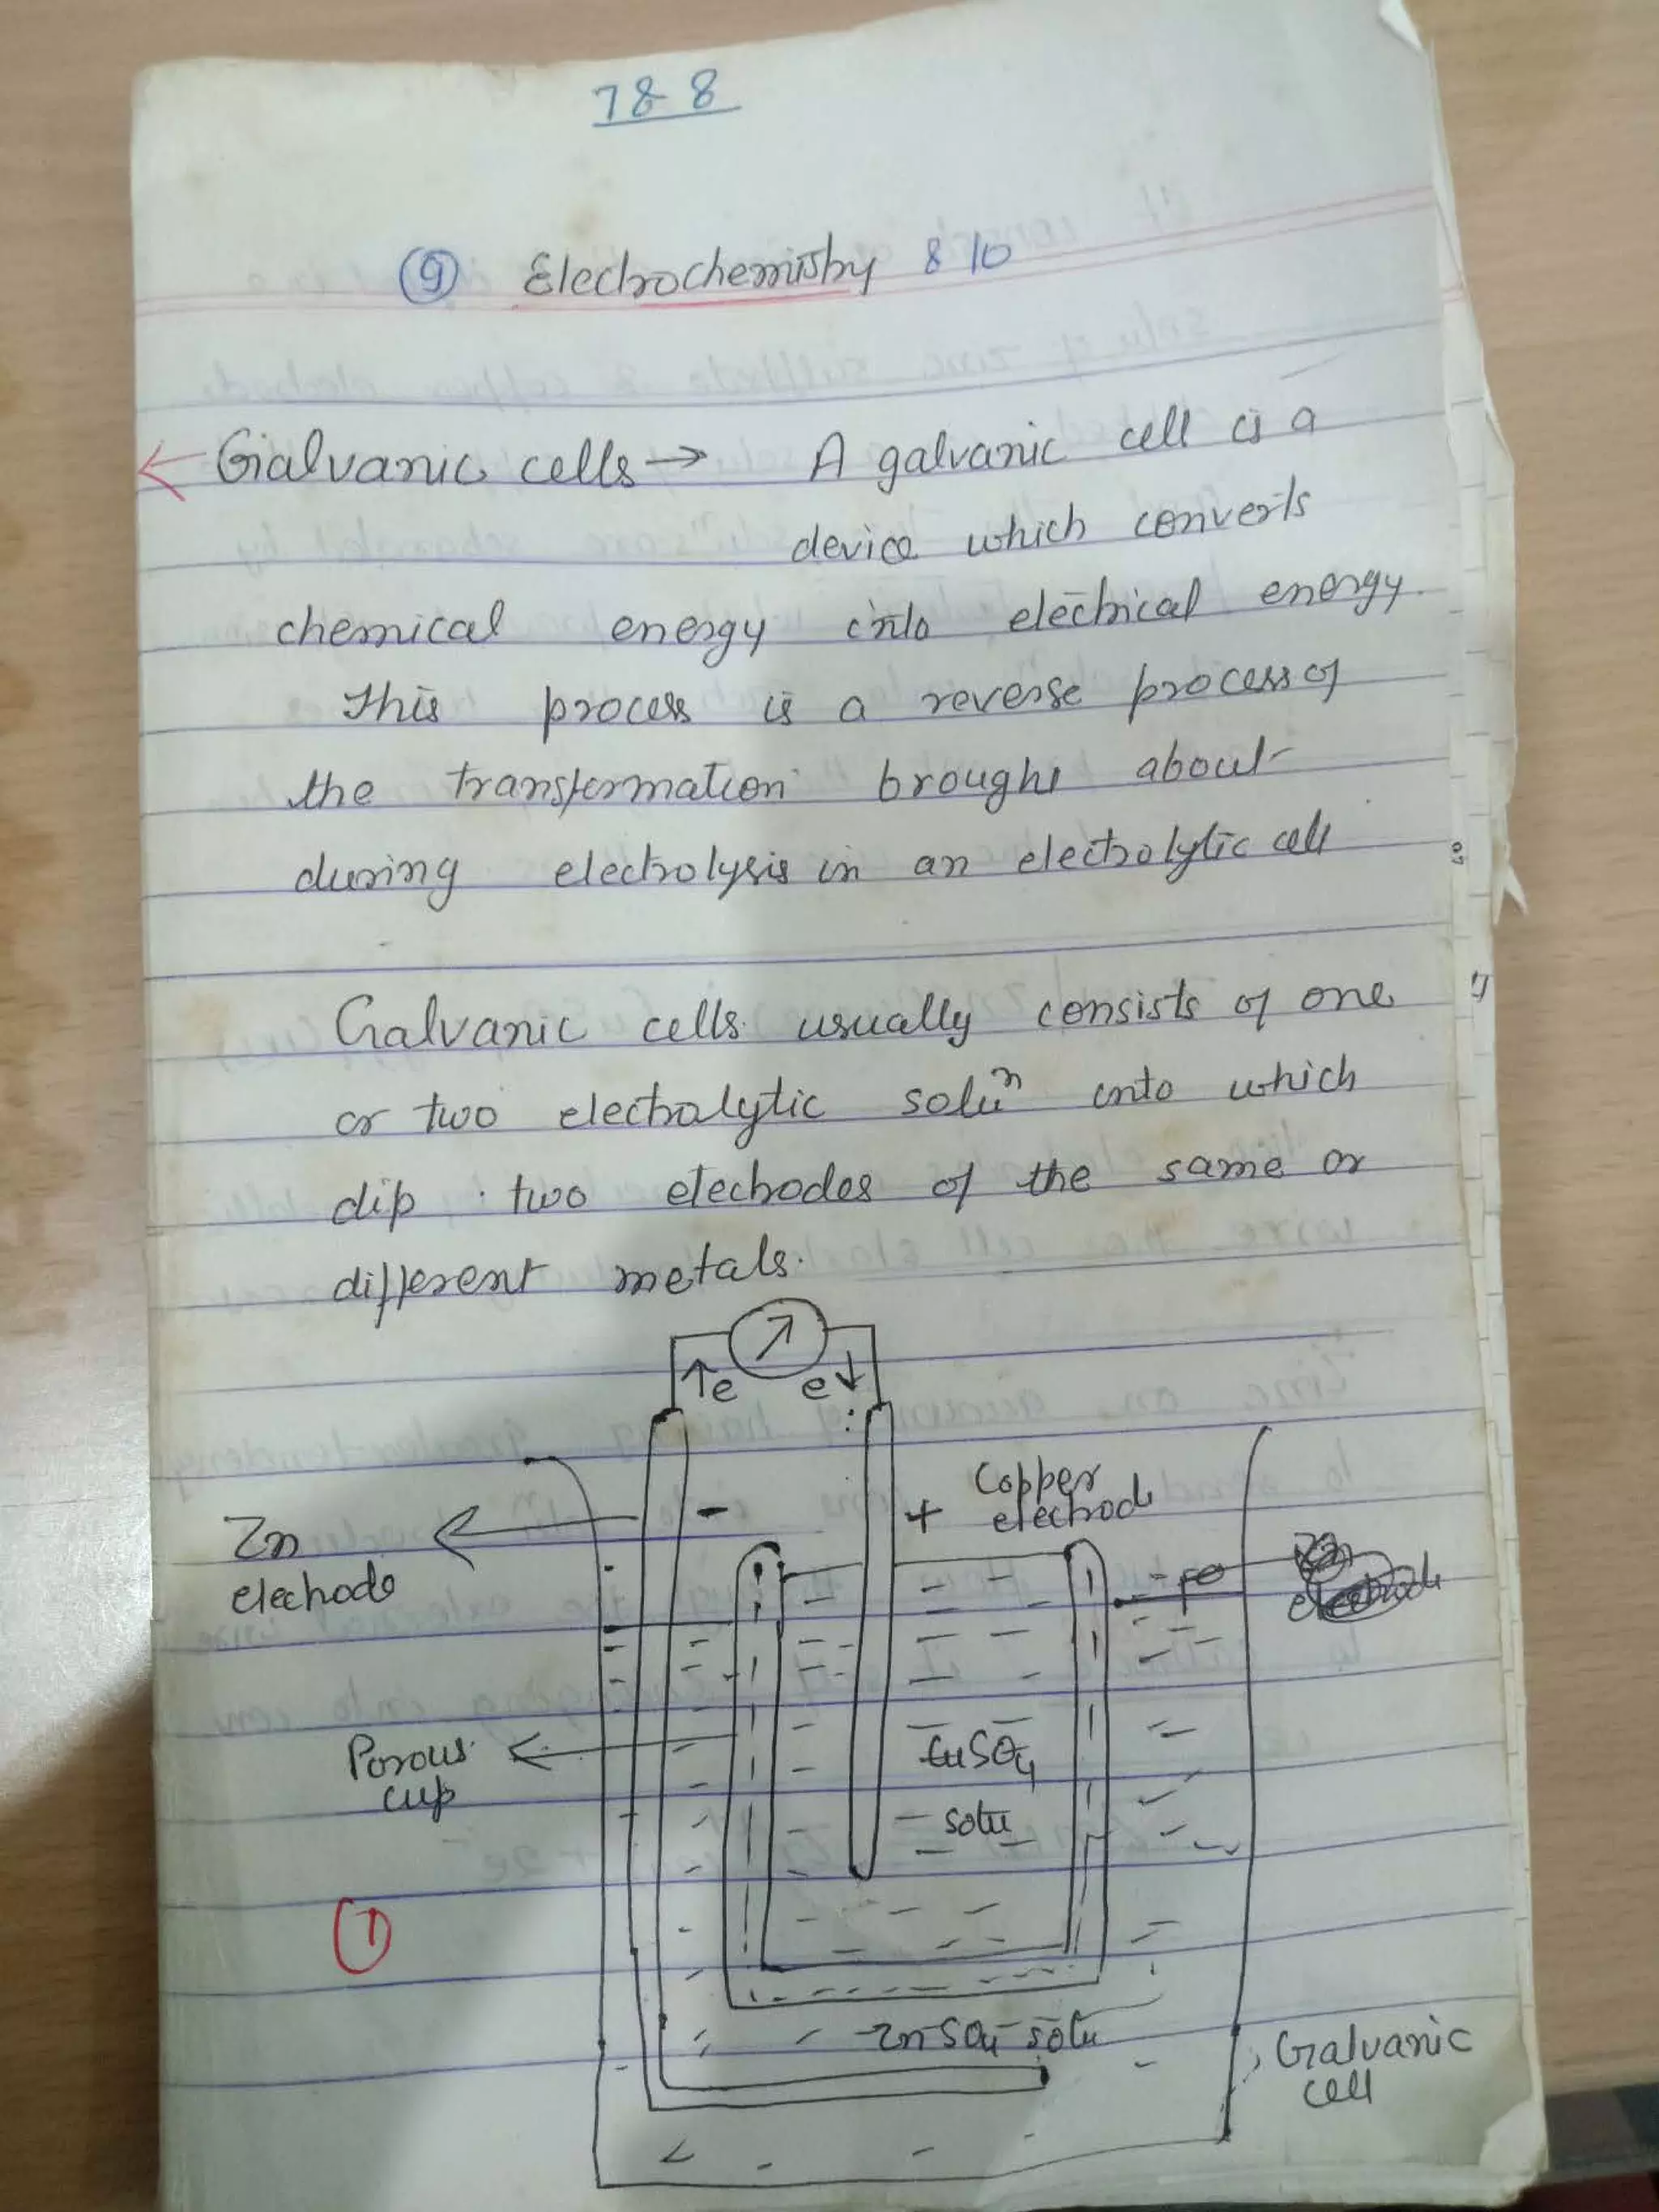 7 & 8
9 Electrochemistry 8 10
Galvanic cells → A galvanic cell is a
device which converts
chemical energy into electrical energy.
This process is a reverse process of
the transformation brought about
during electrolysis in an electrolytic cell
Galvanic cells usually consists of one
or two electrolytic soluⁿ into which
dip two electrodes of the same or
different metals.
↑e e↓
- +
Copper
electrode
Zn
electrode
Porous
cup
CuSO4
solu
1
ZnSO4 solu
Galvanic
cell